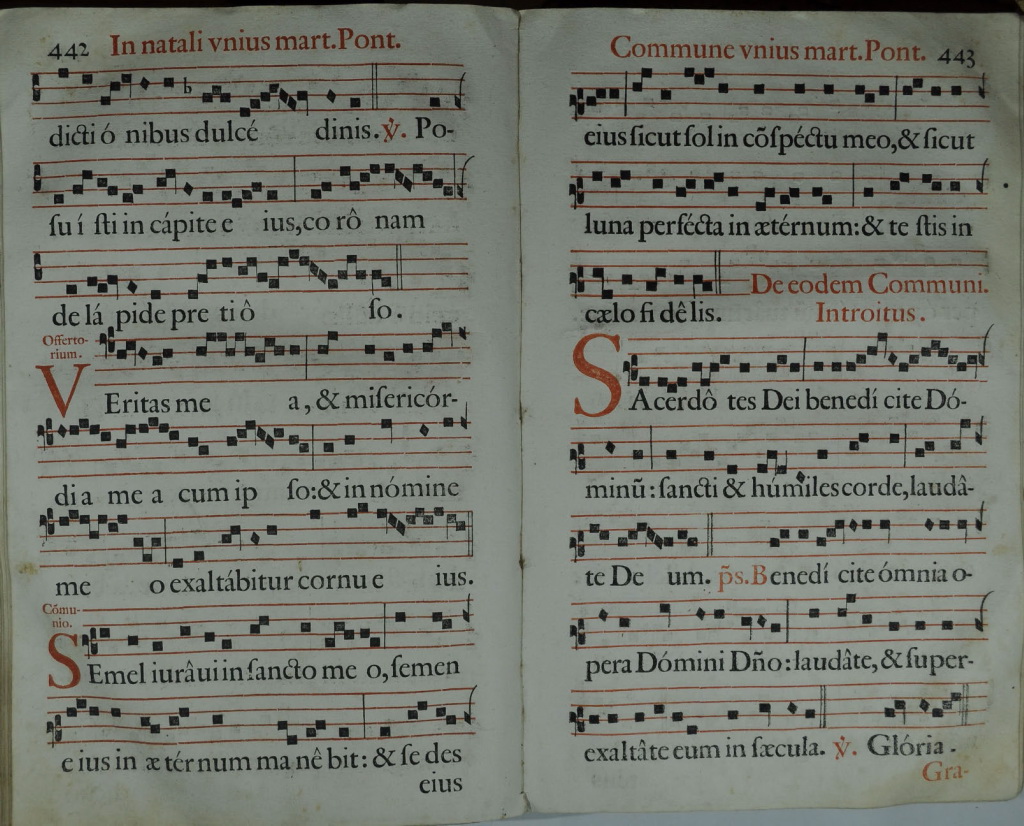 442 In natali vnius mart.Pont.
dicti ó nibus dulcé dinis. ℣. Po-
ſu í ſti in cápite e ius, co rô nam
de lá pide pre ti ô ſo.
Offerto-
rium.
VEritas me a, & miſericór-
di a me a cum ip ſo: & in nómine
me o exaltábitur cornu e ius.
Cómu-
nio.
SEmel iurâui in ſancto me o, ſemen
e ius in æ tér num ma nê bit: & ſe des
eius
Commune vnius mart.Pont. 443
eius ſicut ſol in cõſpéctu meo, & ſicut
luna perfécta in ætérnum: & te ſtis in
cælo fi dê lis.
De eodem Communi.
Introitus.
SAcerdô tes Dei benedí cite Dó-
minũ: ſancti & húmiles corde, laudâ-
te De um. p̃s. Benedí cite ómnia o-
pera Dómini Dño: laudâte, & ſuper-
exaltâte eum in ſæcula. ℣. Glória.
Gra-